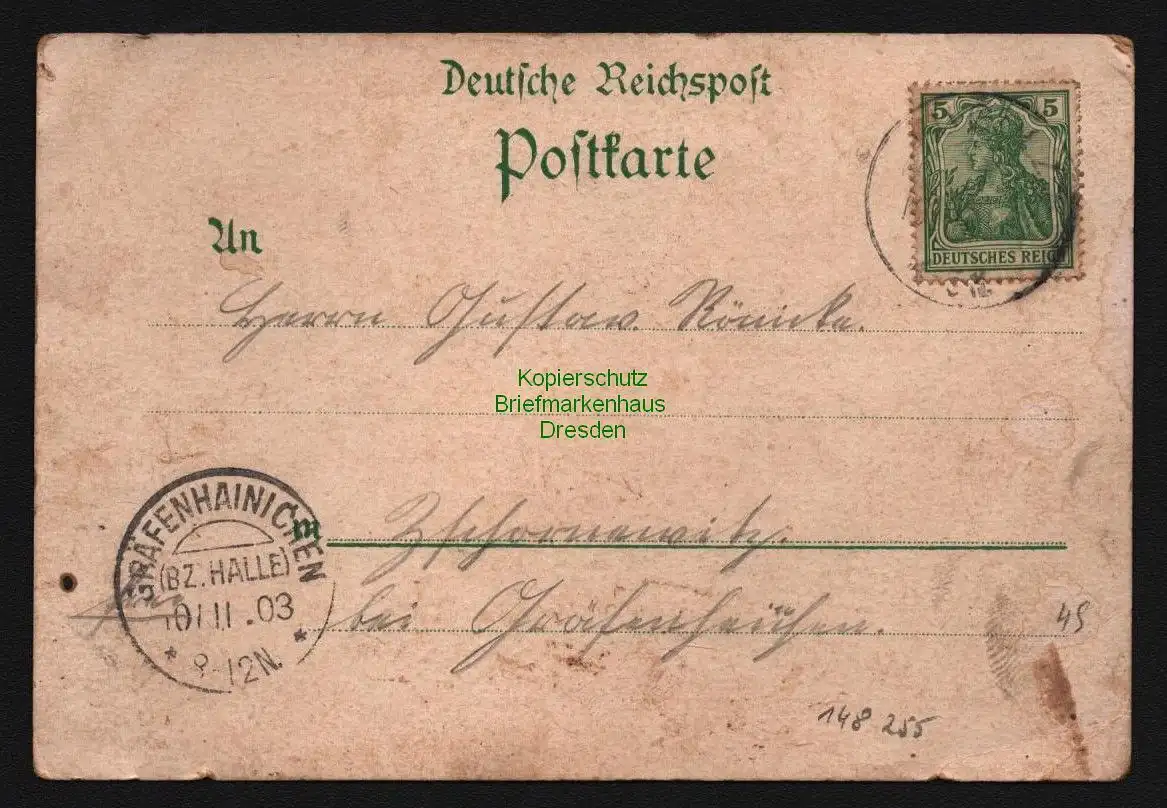 Deutsche Reichspost
Postkarte
5 5
DEUTSCHES REICH
An
Herrn Gustav Römicke.
Kopierschutz
Briefmarkenhaus
Dresden
GRÄFENHAINICHEN
(BZ. HALLE)
.03
8-12N.
in
Zschornewitz.
bei Gräfenheichen.
45
148 255